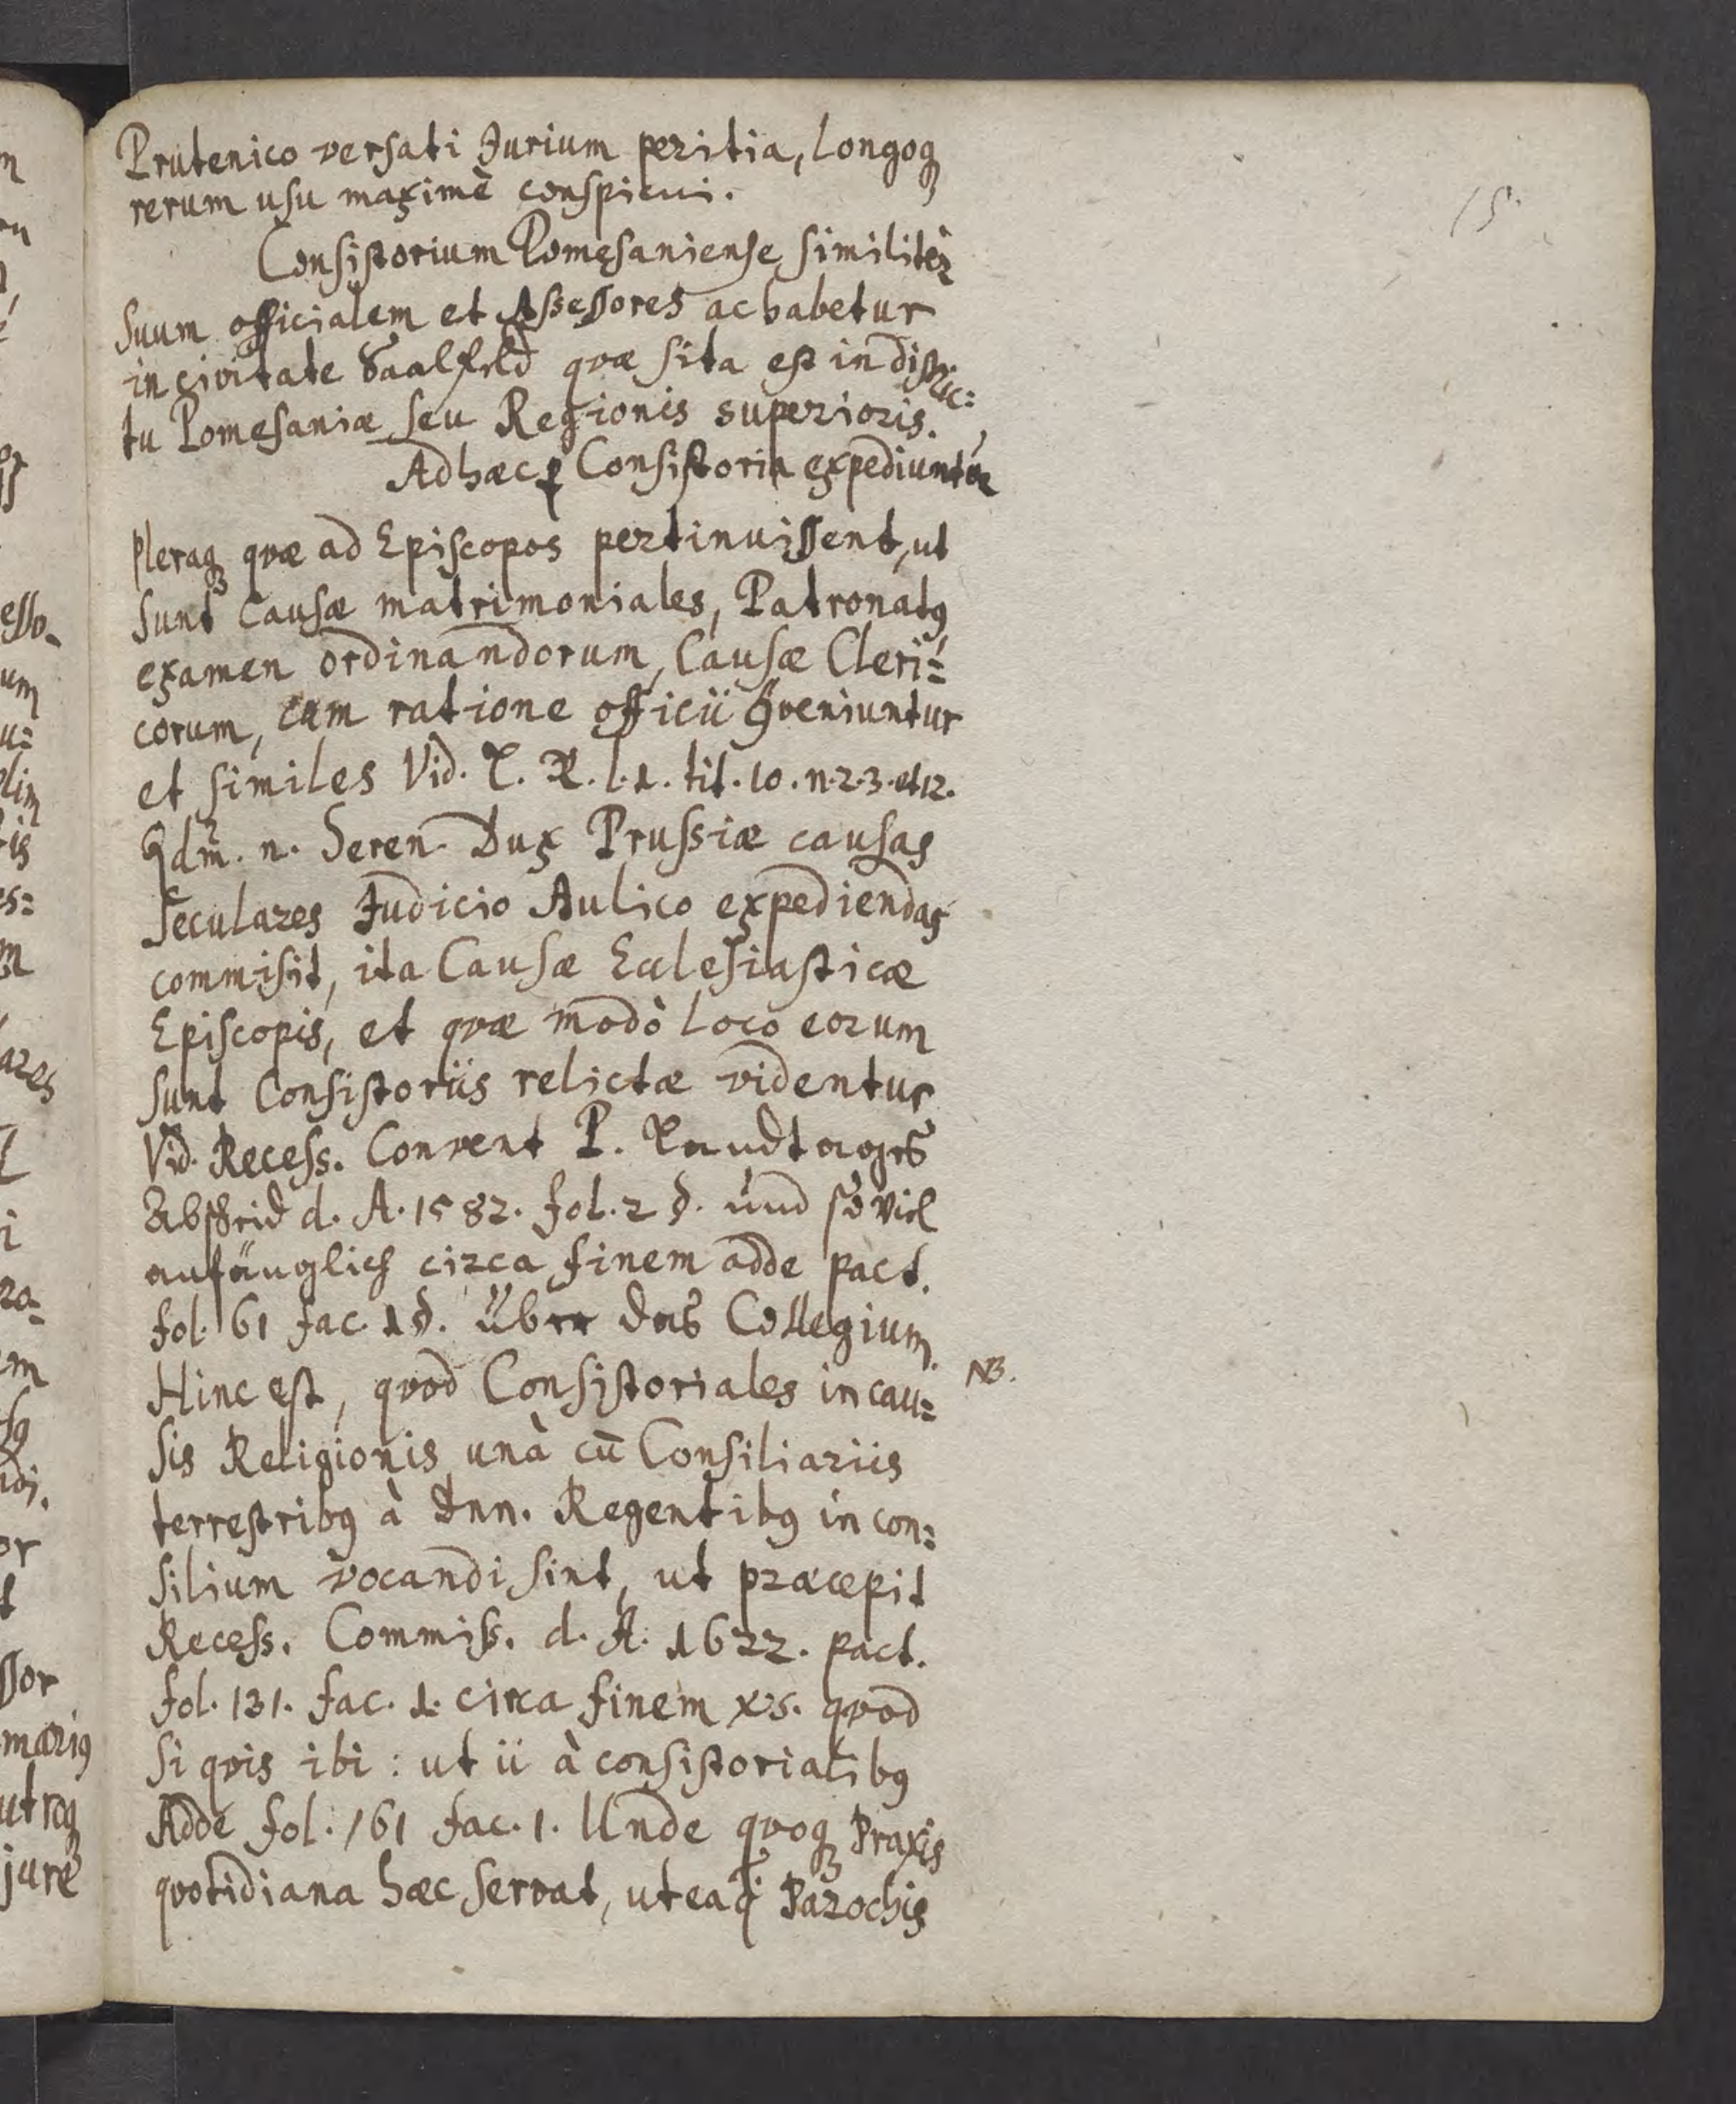 15.
Prutenico versati Jurium peritia, longoq́ꝫ
rerum usu maximè conspicui.
Consistorium Pomesaniense similitèr
suum officialem et Assessores ac habetur
in civitate Saalfeld quæ sita est in distric=
tu Pomesaniæ seu Regionis superioris.
Ad hæc ꝑ Consistoria expediuntur
pleraqꝫ quæ ad Episcopos pertinuissent, ut
sunt Causæ matrimoniales, Patronatꝰ
examen ordinandorum, Causæ Cleri=
corum, cum ratione officii ꝯveniuntur
et similes Vid. L. R. l. 1. tit. 10. n. 2. 3. et 12.
Qdm̃. n. Seren. Dux Prussiæ causas
seculares Judicio Aulico expediendas
commisit, ita Causæ Ecclesiasticæ
Episcopis, et quæ modò loco eorum
sunt Consistoriis relictæ videntur
Vid. Recess. Convent P. Landtages
Abscheid d. A. 1582. fol. 2 §. und so viel
anfänglich circa finem adde pact.
fol. 61 fac. 1 §. Über das Collegium.
Hinc est, quod Consistoriales in cau= NB.
sis Religionis unà cū Consiliariis
terrestribꝰ à Dnn. Regentibꝰ in con=
silium vocandi sint, ut præcepit
Recess. Commiss. d. A. 1622. pact.
fol. 131. fac. 1. circa finem xs. quod
si quis ibi: ut ii à consistorialibꝰ
Adde fol. 161 fac. 1. Unde quoqꝫ Praxis
quotidiana hæc servat, ut ea q̃ Parochis